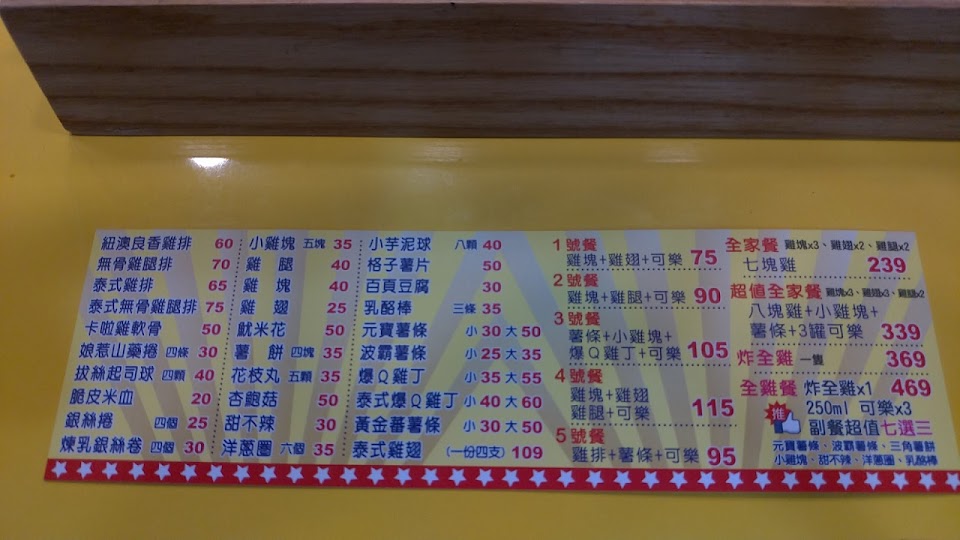 紐澳良香雞排 60
無骨雞腿排 70
泰式雞排 65
泰式無骨雞腿排 75
卡啦雞軟骨 50
娘惹山藥捲 四條 30
拔絲起司球 四顆 40
脆皮米血 20
銀絲捲 四個 25
煉乳銀絲卷 四個 30
小雞塊 五塊 35
雞腿 40
雞塊 40
雞翅 25
魷米花 50
薯餅 四塊 35
花枝丸 五顆 35
杏鮑菇 50
甜不辣 30
洋蔥圈 六個 35
小芋泥球 八顆 40
格子薯片 50
百頁豆腐 30
乳酪棒 三條 35
元寶薯條 小 30 大 50
波霸薯條 小 25 大 35
爆Q雞丁 小 35 大 55
泰式爆Q雞丁 小 40 大 60
黃金蕃薯條 小 30 大 50
泰式雞翅 (一份四支) 109
1號餐
雞塊+雞翅+可樂 75
2號餐
雞塊+雞腿+可樂 90
3號餐
薯條+小雞塊+
爆Q雞丁+可樂 105
4號餐
雞塊+雞翅
雞腿+可樂 115
5號餐
雞排+薯條+可樂 95
全家餐 雞塊x3、雞翅x2、雞腿x2
七塊雞 239
超值全家餐 雞塊x3、雞翅x3、雞腿x2
八塊雞+小雞塊+
薯條+3罐可樂 339
炸全雞 一隻 369
全雞餐 炸全雞x1 469
推 250ml 可樂x3
副餐超值七選三
元寶薯條、波霸薯條、三角薯餅
小雞塊、甜不辣、洋蔥圈、乳酪棒